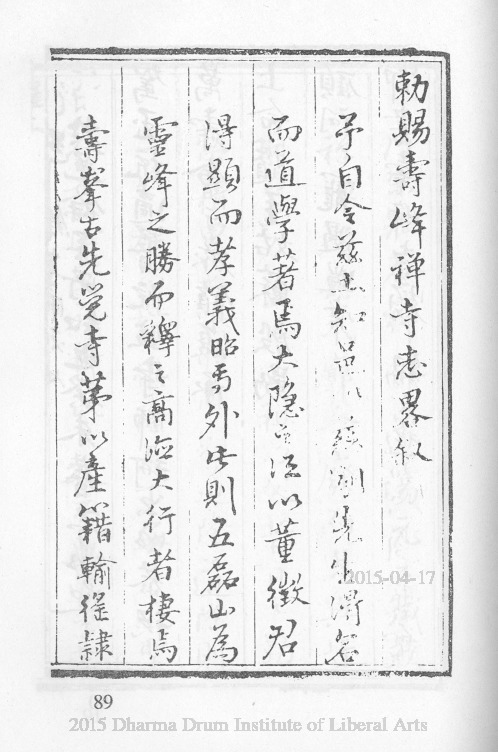 勅賜壽峰禅寺志畧叙
予自令慈知先生得名
而道學著焉大隐以董徵君
得顯而孝義昭焉外此則五磊山為
靈峰之勝而釋之高大行者棲焉
壽峯古先覺寺苐以產籍輸徭隷
2015-04-17
89
2015 Dharma Drum Institute of Liberal Arts